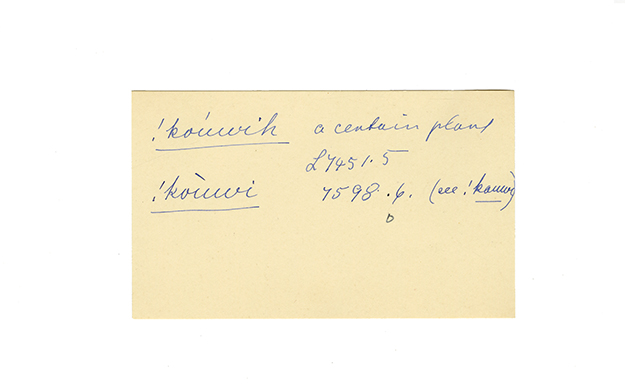 !kóuwih a certain plant
L7451.5
!kòuwi 7598.6. (see !kauwi)
D